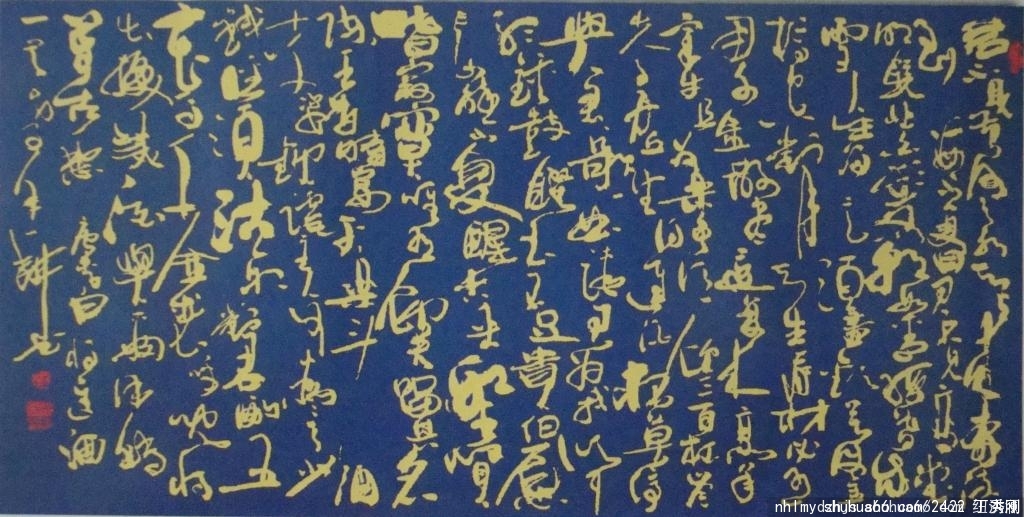 君不見黄河之水天上來奔流
到海不復回君不見高堂
明鏡悲白髮朝如青絲暮成
雪人生得意須盡歡莫使金
樽空對月天生我材必有
用千金散盡還復來烹羊
宰牛且為樂會須一飲三百杯岑
夫子丹丘生將進酒杯莫停
與君歌一曲請君為我側耳
聽鐘鼓饌玉不足貴但願
長醉不復醒古來聖賢
皆寂寞惟有飲者留其名
陳王昔時宴平樂斗酒
十千恣歡謔主人何為言少
錢徑須沽取對君酌五
花馬千金裘呼兒將
出換美酒與爾同銷
萬古愁 唐李白將進酒
年